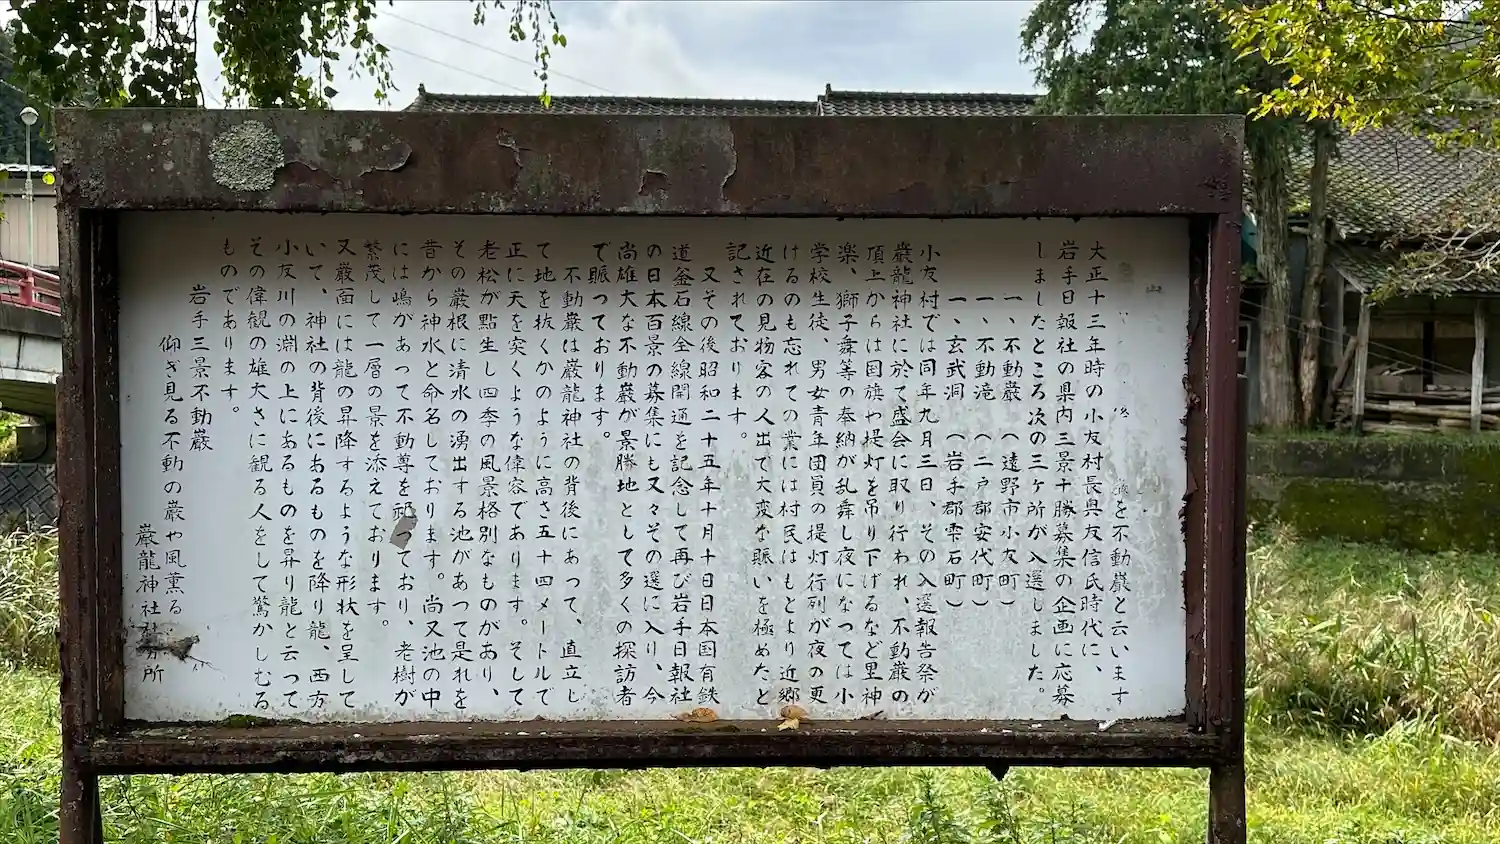 の 後 巌を不動巌と云います
大正十三年時の小友村長奥友信氏時代に、
岩手日報社の県内三景十勝募集の企画に応募
しましたところ次の三ヶ所が入選しました。
一、不動巌 (遠野市小友町)
一、不動滝 (二戸郡安代町)
一、玄武洞 (岩手郡雫石町)
小友村では同年九月三日、その入選報告祭が
巌龍神社に於て盛会に取り行われ、不動巌の
頂上からは国旗や提灯を吊り下げるなど里神
楽、獅子舞等の奉納が乱舞し夜になっては小
学校生徒、男女青年団員の提灯行列が夜の更
けるのも忘れての業には村民はもとより近郷
近在の見物客の人出で大変な賑いを極めたと
記されております。
又その後昭和二十五年十月十日日本国有鉄
道釜石線全線開通を記念して再び岩手日報社
の日本百景の募集にも又々その選に入り、今
尚雄大な不動巌が景勝地として多くの探訪者
で賑っております。
不動巌は巌龍神社の背後にあって、直立し
て地を抜くかのように高さ五十四メートルで
正に天を突くような偉容であります。そして
老松が點生し四季の風景格別なものがあり、
その巌根に清水の湧出する池があつて是れを
昔から神水と命名しております。尚又池の中
には嶋があって不動尊を祀ており、老樹が
繁茂して一層の景を添えております。
又巌面には龍の昇降するような形状を呈して
いて、神社の背後にあるものを降り龍、西方
小友川の淵の上にあるものを昇り龍と云って
その偉観の雄大さに観る人をして驚かしむる
ものであります。
岩手三景不動巌
仰ぎ見る不動の巌や風薫る
巌龍神社社務所